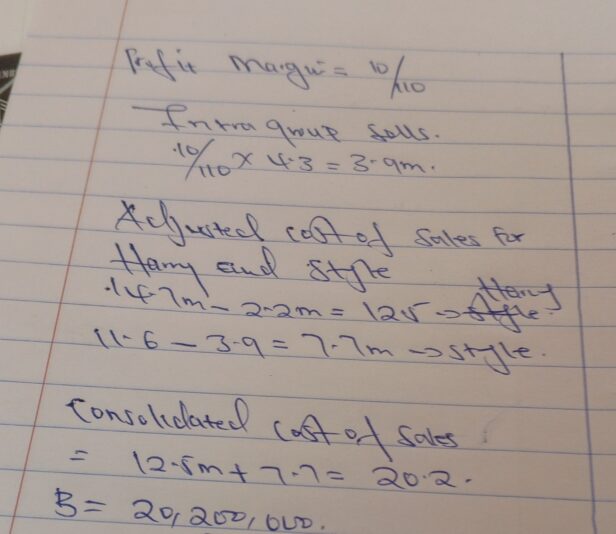 Profit Margin = 10/110
Intra group sells.
10/110 x 4.3 = 3.9m.
Adjusted cost of sales for
Harry and Style
14.7m - 2.2m = 12.5 → Harry
11.6 - 3.9 = 7.7m → Style.
Consolidated cost of sales
= 12.5m + 7.7 = 20.2.
B = 20,200,000.